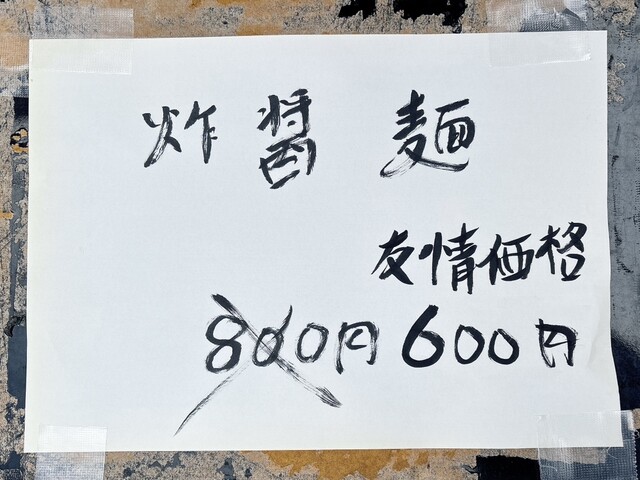 炸醤麺
友情価格
800円 600円